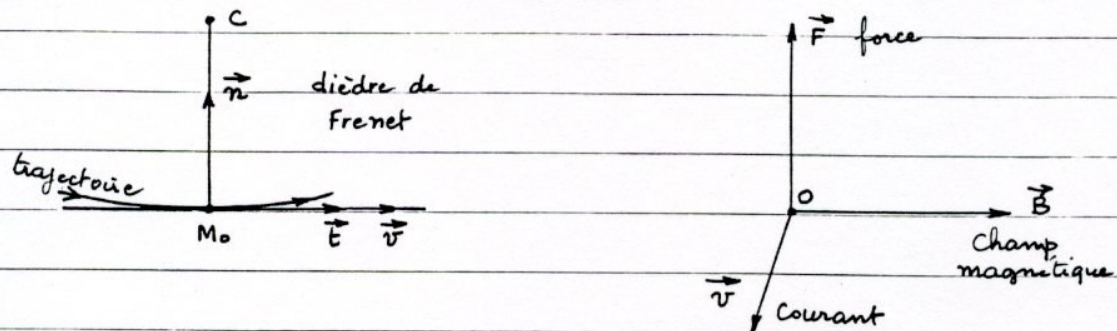 C
n
dièdre de
Frenet
trajectoire
M₀
t
v
F force
O
B
Champ
magnétique
v
Courant